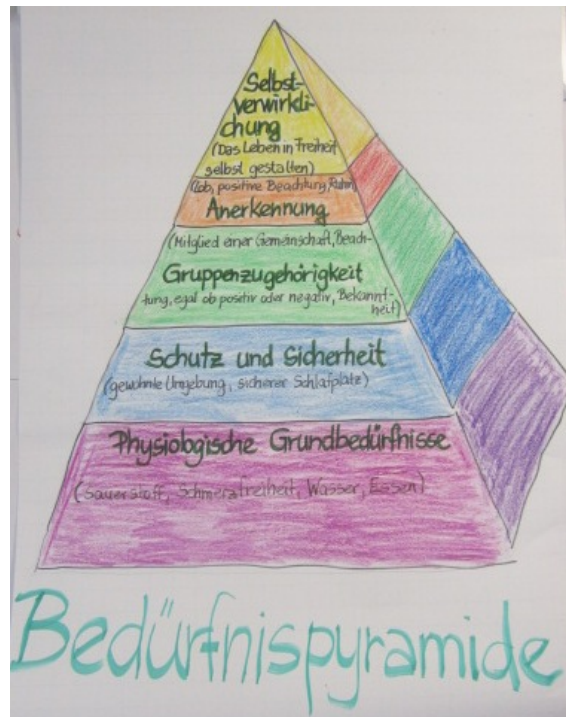 Selbst-
verwirkli-
chung
(Das Leben in Freiheit
selbst gestalten)
(Lob, positive Beachtung, Ruhm)
Anerkennung
(Mitglied einer Gemeinschaft, Beach-
Gruppenzugehörigkeit
tung, egal ob positiv oder negativ, Bekannt-
heit)
Schutz und Sicherheit
(gewohnte Umgebung, sicherer Schlafplatz)
Physiologische Grundbedürfnisse
(Sauerstoff, Schmerzfreiheit, Wasser, Essen)
Bedürfnispyramide